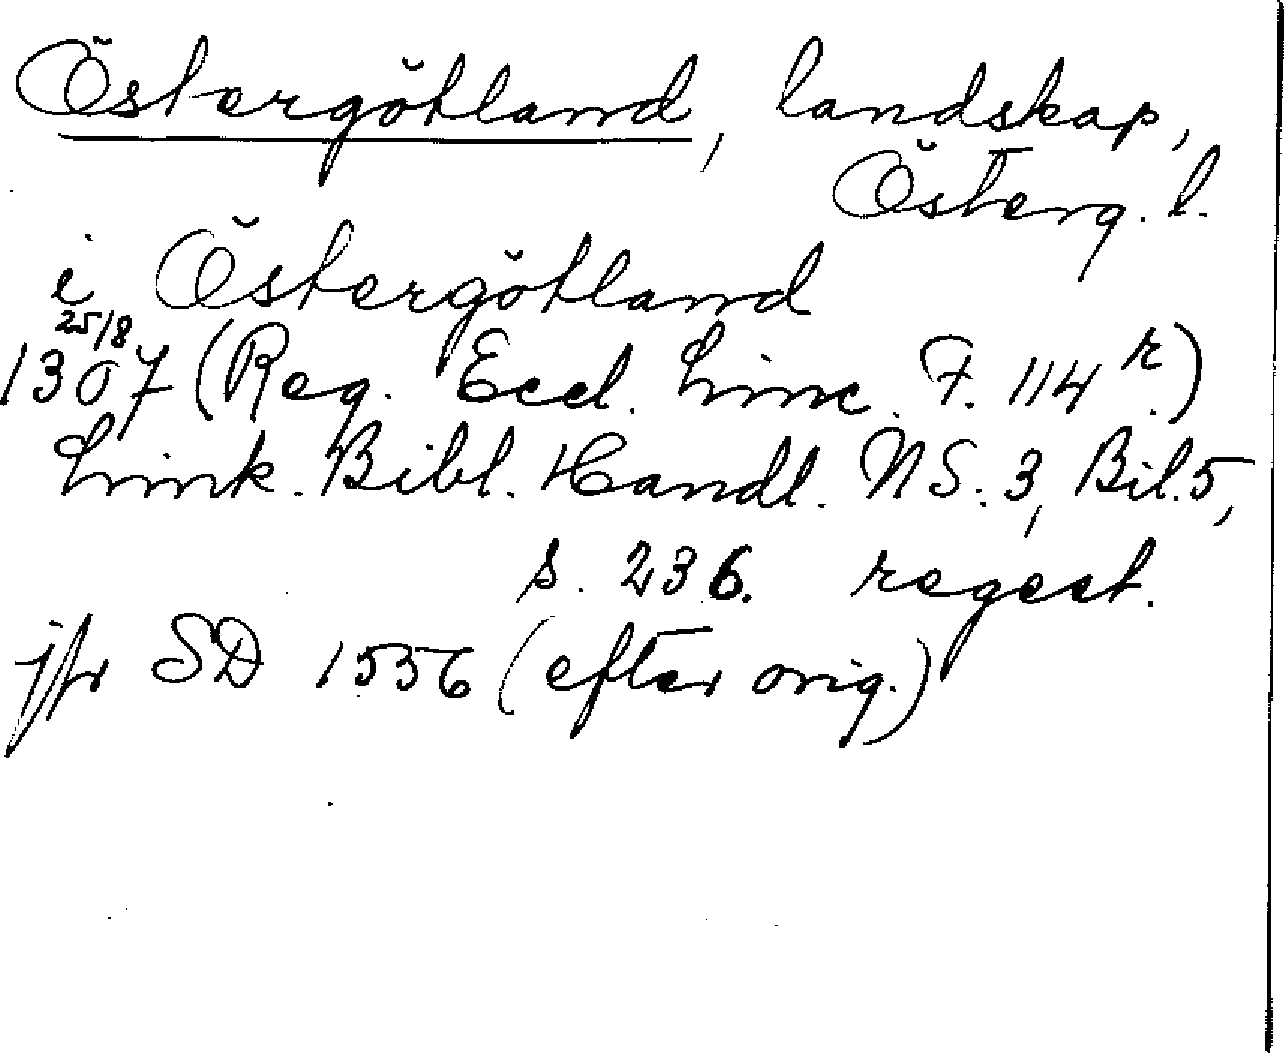 Östergötland, landskap,
Österg. l.
i Östergötland
25/8
1307 (Reg. Eccl. Linc. F. 114 r.)
Link. Bibl. Handl. NS. 3, Bil. 5,
s. 236. regest.
jfr SD 1556 (efter orig.)